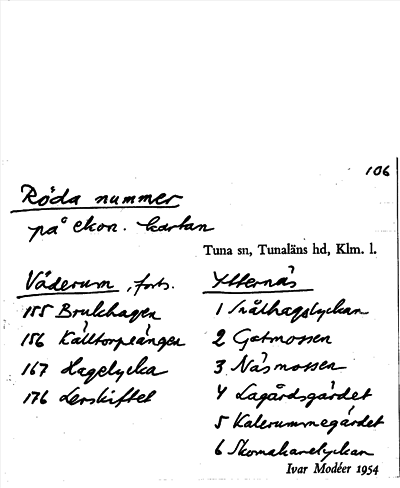 106
Röda nummer
på ekon. kartan
Tuna sn, Tunaläns hd, Klm. l.
Våderum, forts.
155 Brukhagen
156 Källtorpeängen
167 Hagelycka
176 Lerskiftet
Ytternäs
1 Snålhagslyckan
2 Getmossen
3 Näsmossen
4 Lagårdsgärdet
5 Kalerummegärdet
6 Skomakarelyckan
Ivar Modéer 1954